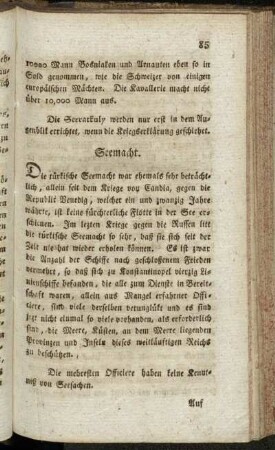 85
10,000 Mann Bosniaken und Arnauten eben so in
Sold genommen, wie die Schweizer von einigen
europäischen Mächten. Die Kavallerie macht nicht
über 10,000 Mann aus.
Die Seerratkuly werden nur erst in dem Au-
genblik errichtet, wenn die Kriegserklärung geschiehet.
Seemacht.
Die türkische Seemacht war ehemals sehr beträcht-
lich, allein seit dem Kriege von Candia, gegen die
Republik Venedig, welcher ein und zwanzig Jahre
währte, ist keine fürchterliche Flotte in der See er-
schienen. Im lezten Kriege gegen die Russen litt
die türkische Seemacht so sehr, daß sie sich seit der
Zeit nie hat wieder erholen können. Es ist zwar
die Anzahl der Schiffe nach geschloßenem Frieden
vermehrt, so daß sich zu Konstantinopel vierzig Li-
nienschiffe befanden, die alle zum Dienste in Bereit-
schaft waren, allein aus Mangel erfahrner Offi-
ciere, sind viele derselben verunglükt und es sind
jezt nicht einmal so viele vorhanden, als erforderlich
sind, die Meere, Küsten, an dem Meere liegenden
Provinzen und Inseln dieses weitläuftigen Reichs
zu beschützen.
Die mehresten Officiere haben keine Kennt-
niß von Seesachen.
Auf